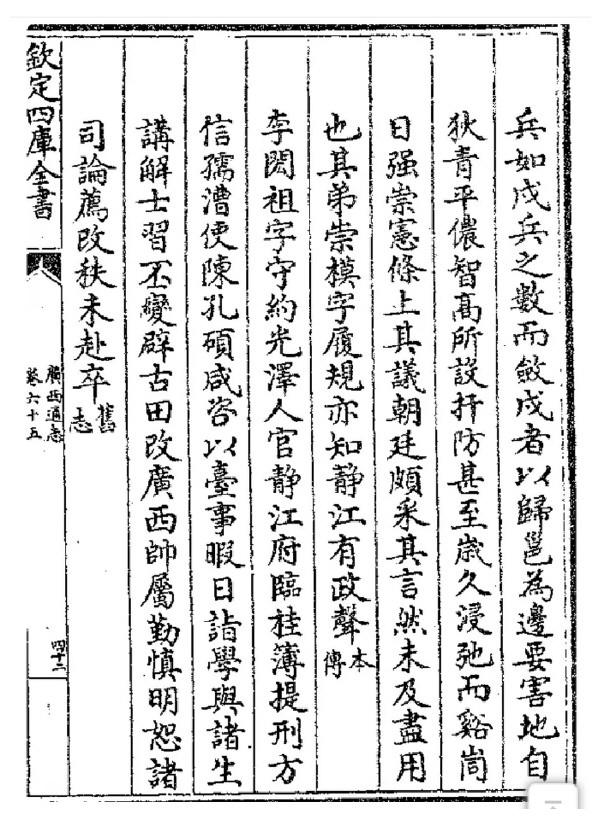 兵如戍兵之數而斂戍者以歸邕為邊要害地自
狄青平儂智高所設扞防甚至歳久浸弛而谿峝
日强崇憲條上其議朝廷頗采其言然未及盡用
也其弟崇模字履規亦知静江有政聲本傳
李閎祖字守約光澤人官静江府臨桂簿提刑方
信孺漕使陳孔碩咸咨以臺事暇日詣學與諸生
講解士習丕變辟古田改廣西帥屬勤慎明恕諸
司論薦改秩未赴卒舊志
欽定四庫全書
廣西通志
卷六十五
四十三